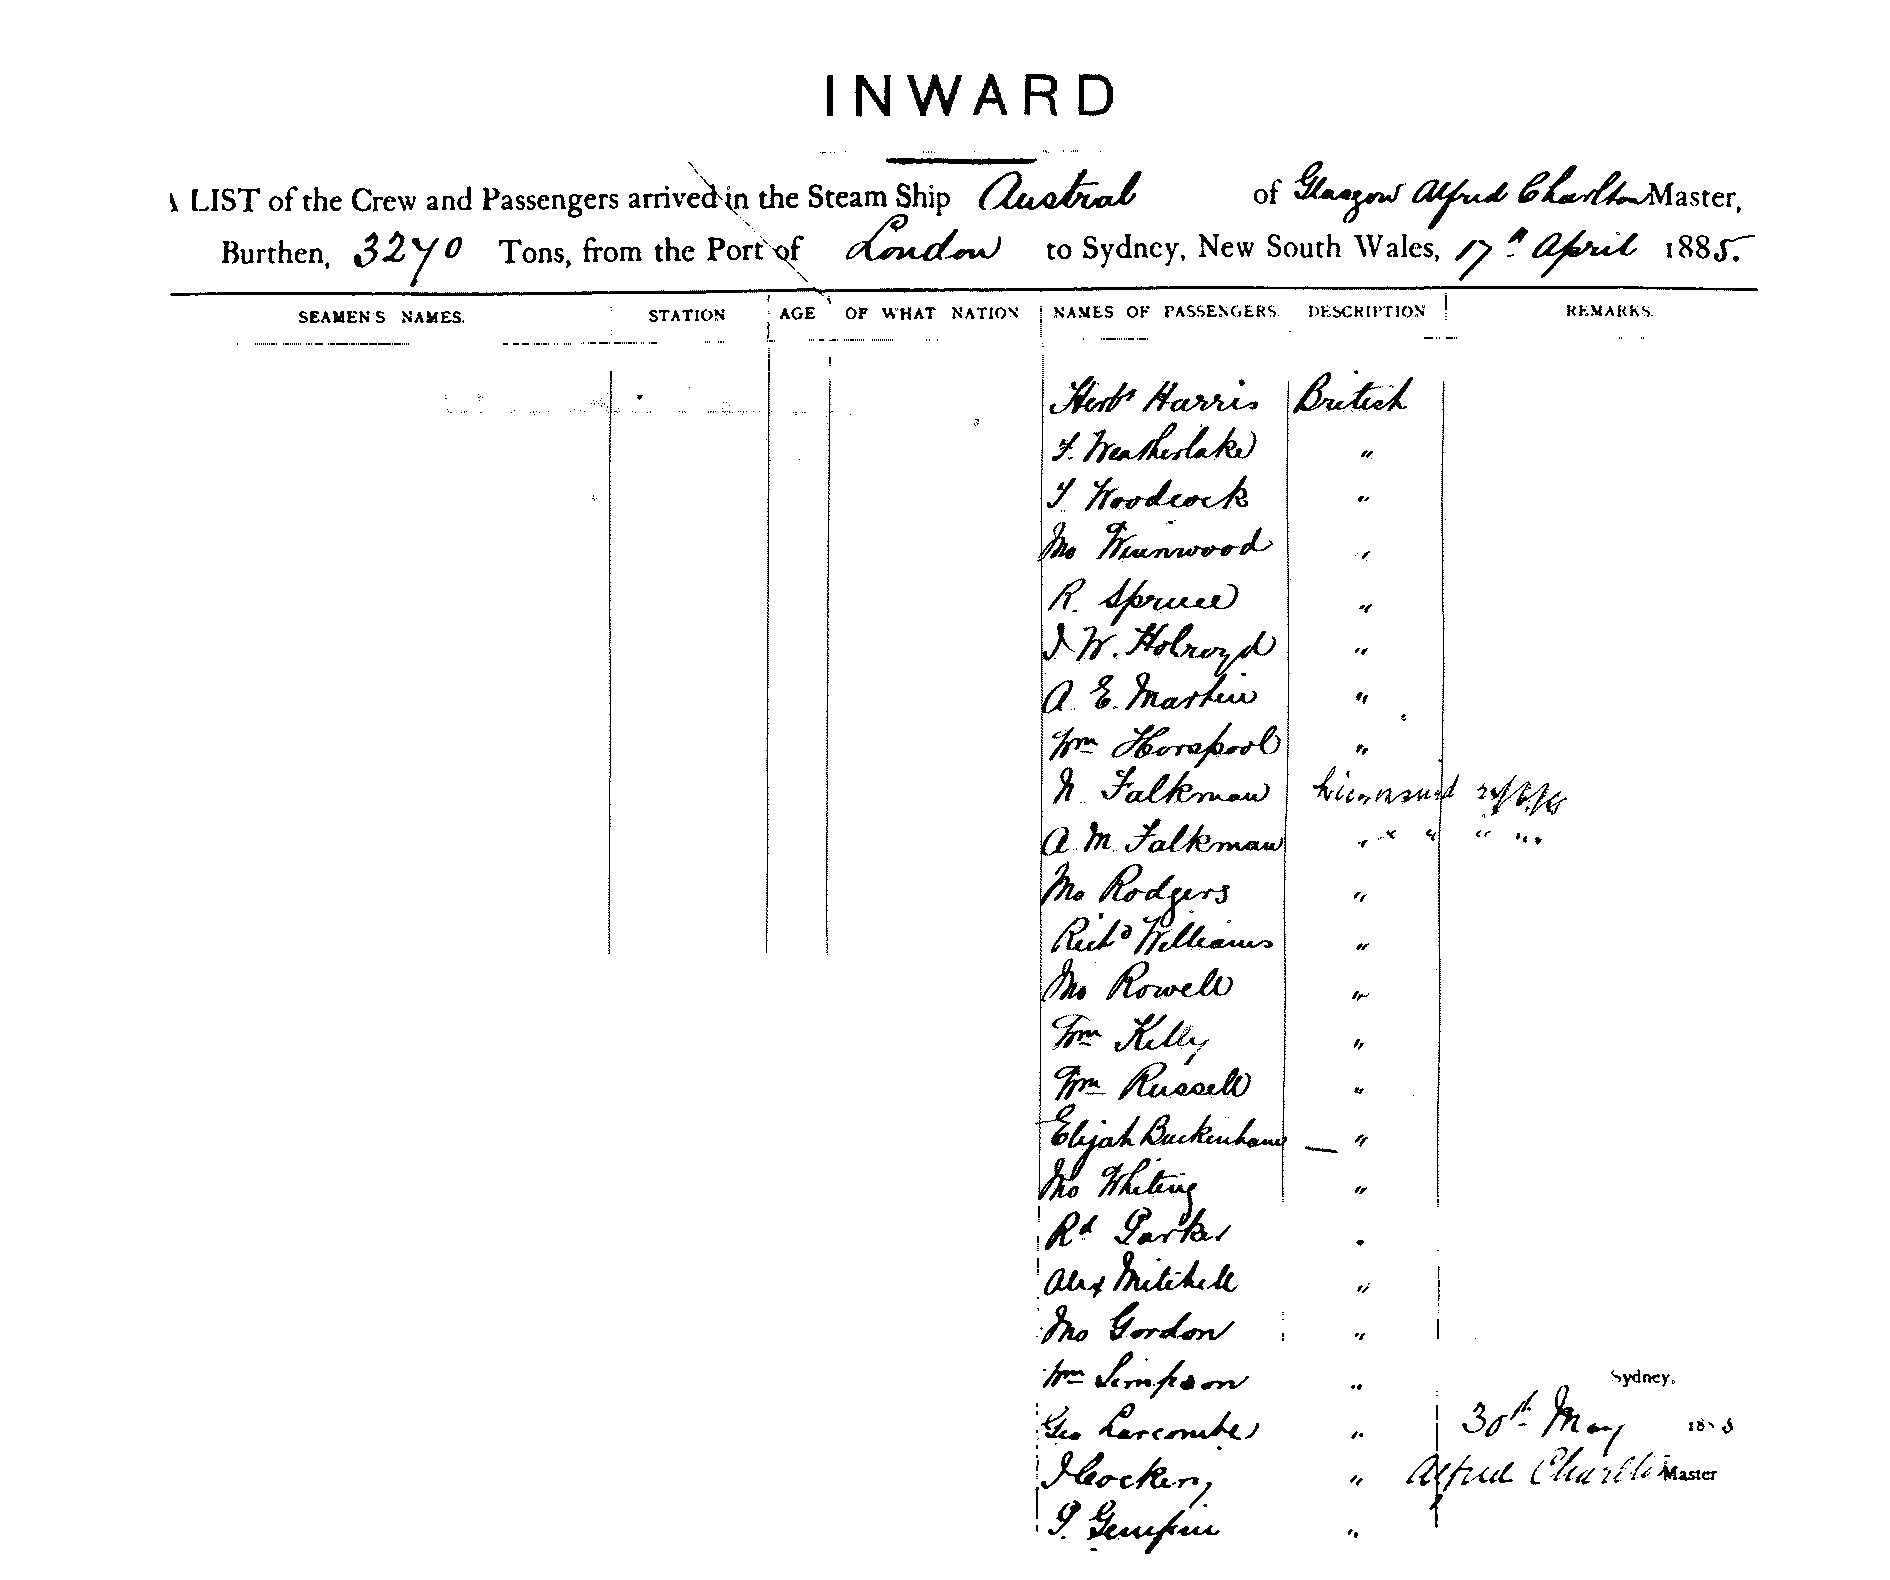 INWARD
A LIST of the Crew and Passengers arrived in the Steam Ship Austral of Glasgow Alfred Charlton Master,
Burthen, 3270 Tons, from the Port of London to Sydney, New South Wales, 17th April 1885.
SEAMEN'S NAMES. STATION AGE OF WHAT NATION NAMES OF PASSENGERS DESCRIPTION REMARKS.
Herbt Harris British
F. Weatherlake "
T Woodcock "
Mo Winnwood "
R. Spruce "
J W. Holroyd "
A. E. Martin "
Wm Horspool "
N. Falkman
A M Falkman " " " " "
Mo Rodgers "
Richd Williams "
Mo Rowell "
Wm Kelly "
Wm Russell "
Elijah Buckenham — "
Mo Whiting "
Rd Parker "
Alex Mitchell "
Mo Gordon "
Wm Simpson " Sydney,
Geo Larcombe " 30th May 188
J Cockery " Alfred Charlton Master
P. "